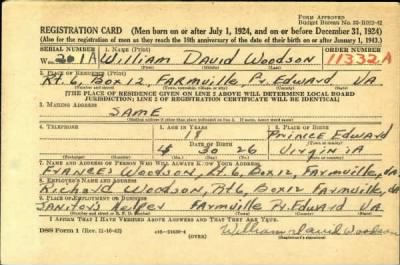 Form Approved
Budget Bureau No. 33-R012-42
REGISTRATION CARD (Men born on or after July 1, 1924, and on or before December 31, 1924)
(Also for the registration of men as they reach the 18th anniversary of the date of their birth on or after January 1, 1943.)
SERIAL NUMBER 1. NAME (Print) ORDER NUMBER
W 201A William David Woodson 11332A
(First) (Middle) (Last)
2. PLACE OF RESIDENCE (Print)
Rt. 6, Box 12, Farmville Pr. Edward VA
[THE PLACE OF RESIDENCE GIVEN ON LINE 2 ABOVE WILL DETERMINE LOCAL BOARD
JURISDICTION; LINE 2 OF REGISTRATION CERTIFICATE WILL BE IDENTICAL]
3. MAILING ADDRESS
SAME
4. TELEPHONE 5. AGE IN YEARS 6. PLACE OF BIRTH
18 Prince Edward
DATE OF BIRTH
4 30 26 Virginia
7. NAME AND ADDRESS OF PERSON WHO WILL ALWAYS KNOW YOUR ADDRESS
Frances Woodson, Rt. 6, Box 12, Farmville, Va.
8. EMPLOYER'S NAME AND ADDRESS
Richard Woodson, Rt 6, Box 12 Farmville, Va.
9. PLACE OF EMPLOYMENT OR BUSINESS
Janitors Helper Farmville Pr. Edward VA
I AFFIRM THAT I HAVE VERIFIED ABOVE ANSWERS AND THAT THEY ARE TRUE.
DSS Form 1 (Rev. 11-16-42) (OVER) William David Woodson
(Registrant's signature)